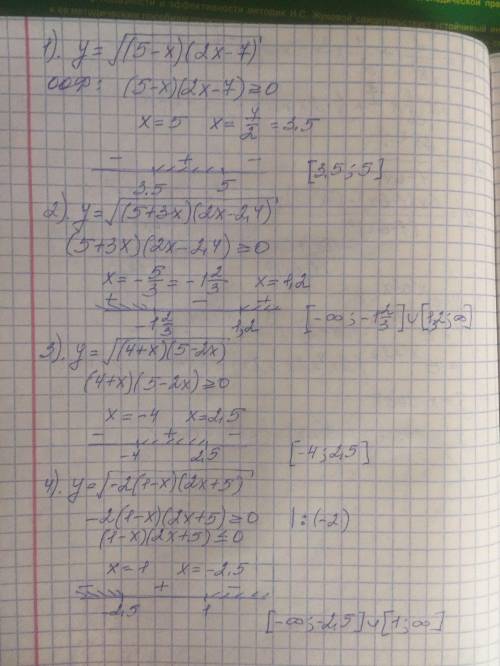 1). y=√(5-x)(2x-7)
ООФ: (5-x)(2x-7)≥0
x=5 x=7/2=3,5
- + -
3.5 5 [3,5;5]
2). y=√(5+3x)(2x-2,4)
(5+3x)(2x-2,4)≥0
x=-5/3=-1 2/3 x=1,2
+ - +
-1 2/3 1,2 [-∞;-1 2/3]∪[1,2;∞]
3). y=√(4+x)(5-2x)
(4+x)(5-2x)≥0
x=-4 x=2,5
- + -
-4 2,5 [-4;2,5]
4). y=√-2(1-x)(2x+5)
-2(1-x)(2x+5)≥0 |:(-2)
(1-x)(2x+5)≤0
x=1 x=-2,5
- + -
-2,5 1 [-∞;-2,5]∪[1;∞]